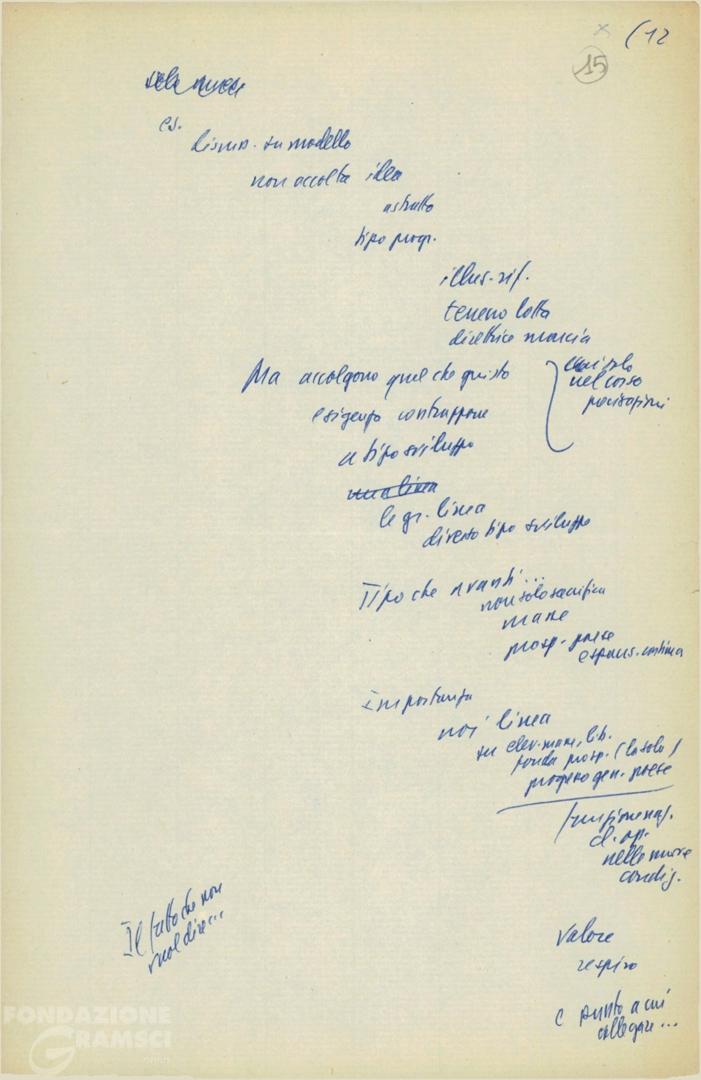 (12
15
es.
discus. su modello
non accolta idea
astratto
tipo progr.
illus. rif.
terreno lotta
direttrice marcia
Ma accolgono quel che questo
esigenza contrappone
a tipo sviluppo
una linea
le gr. linea
diverso tipo sviluppo
nel corso
Tipo che avanti...
non solo sacrifica
masse
prosp. paese
espans. continua
Importanza
noi linea
su elev. masse, lib.
fonda prosp. (la sola)
progresso gen. paese
funzione naz.
cl. op.
nelle nuove
condiz.
Il fatto che non
vuol dire...
valore
respiro
e punto a cui
collegare...
FONDAZIONE
GRAMSCI